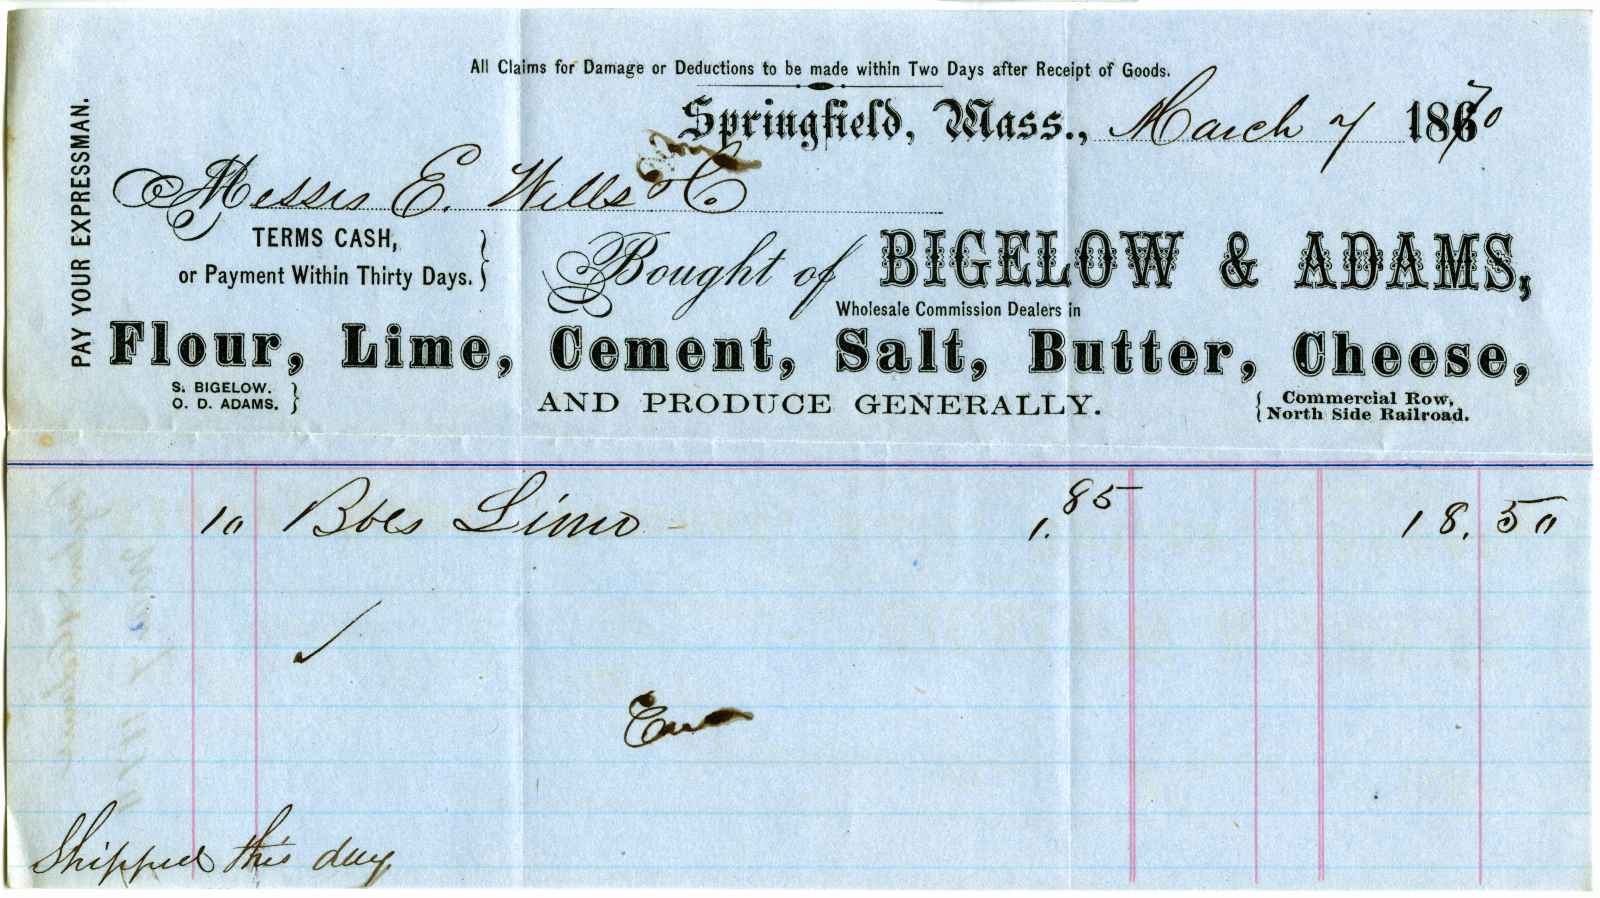 All Claims for Damage or Deductions to be made within Two Days after Receipt of Goods.
Springfield, Mass., March 7 1870
PAY YOUR EXPRESSMAN.
Messrs E. Wells & Co
TERMS CASH,
or Payment Within Thirty Days.
Bought of BIGELOW & ADAMS,
Wholesale Commission Dealers in
Flour, Lime, Cement, Salt, Butter, Cheese,
S. BIGELOW.
O. D. ADAMS.
AND PRODUCE GENERALLY.
Commercial Row,
North Side Railroad.
10 Bbls Lime 1.85 18.50
Shipped this day